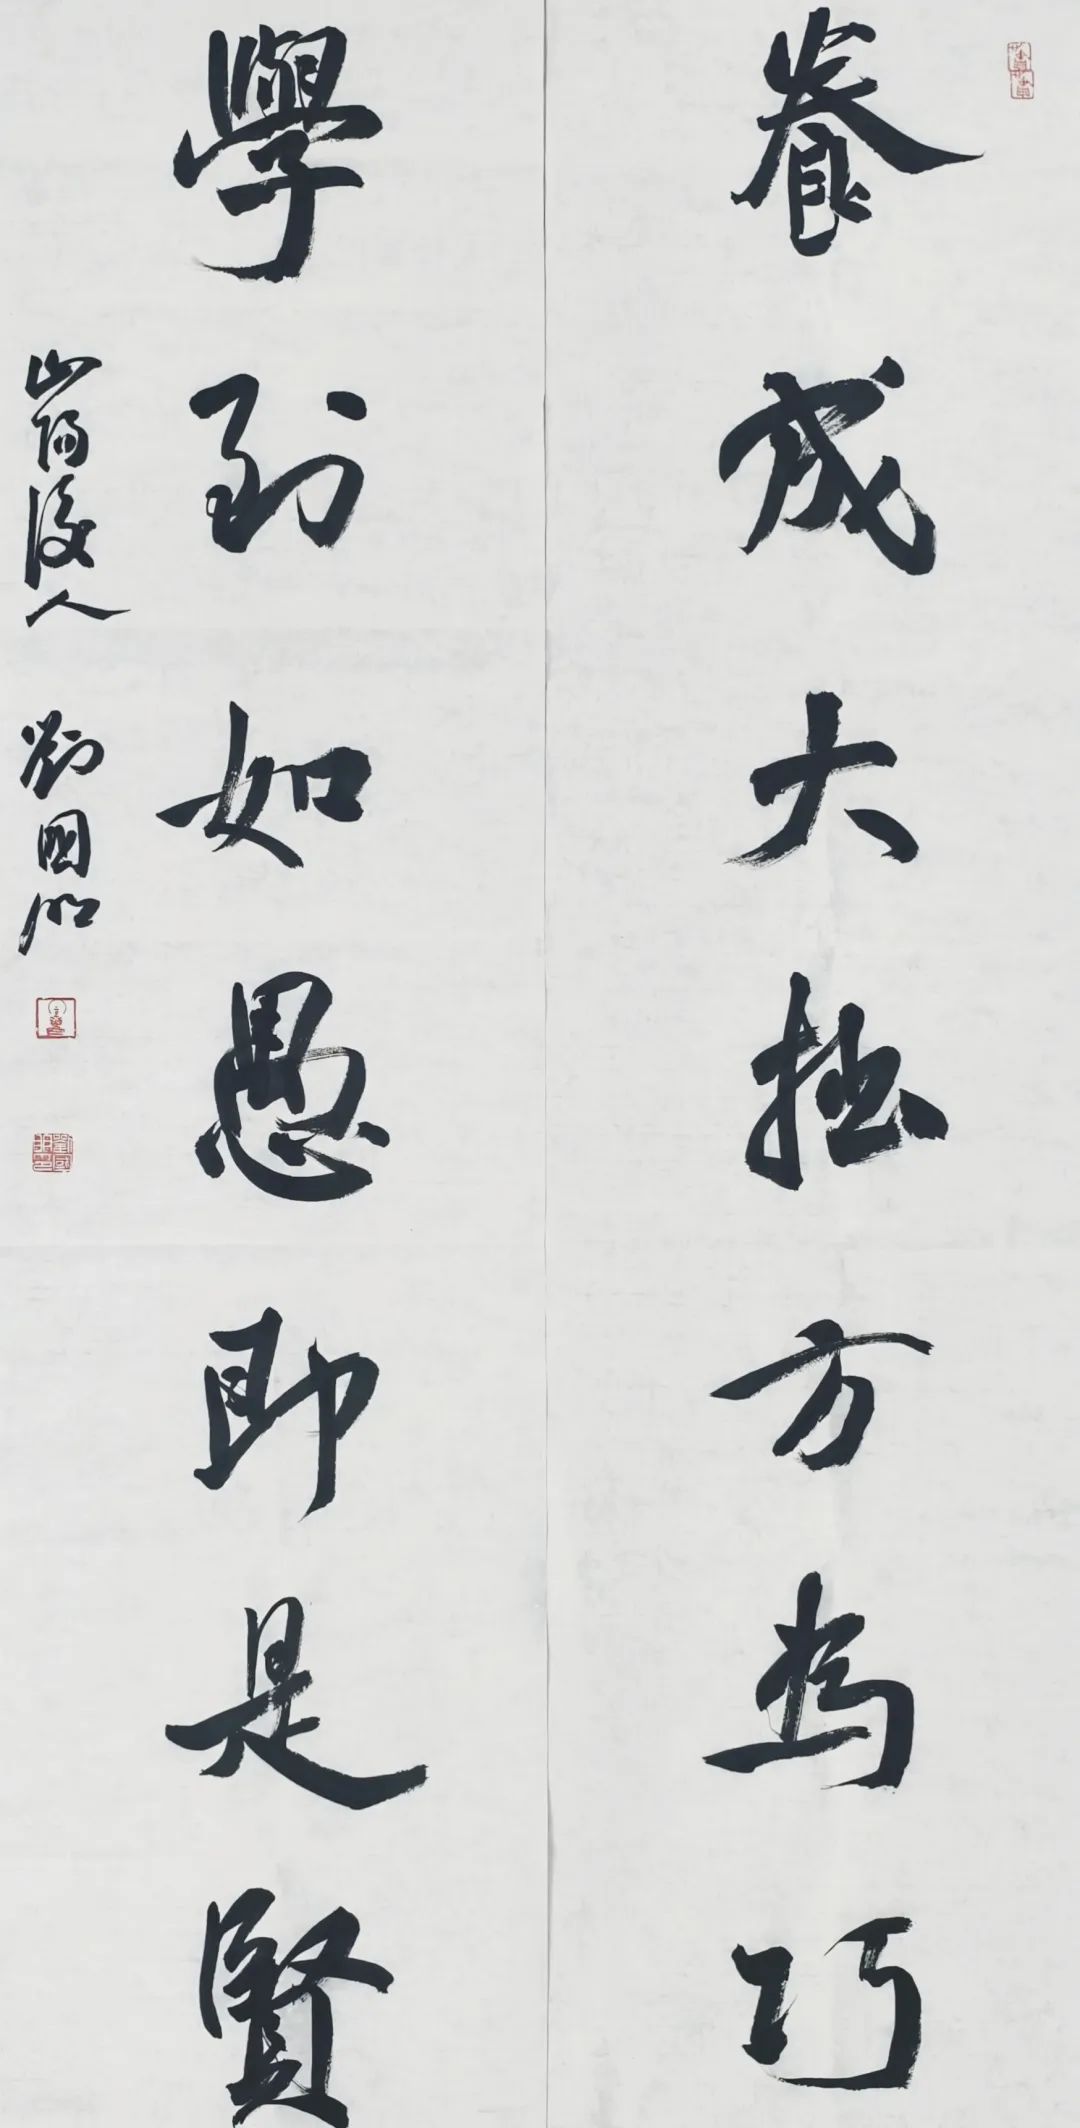 養成大拙方為巧
學到如愚即是賢
山陽後人 劉國明